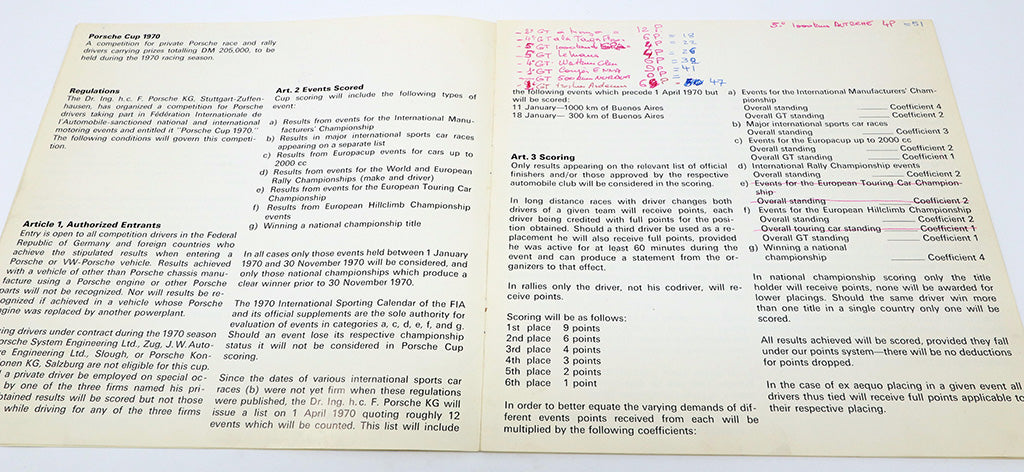 Porsche Cup 1970
A competition for private Porsche race and rally
drivers carrying prizes totalling DM 205,000, to be
held during the 1970 racing season.
Regulations
The Dr. Ing. h.c. F. Porsche KG, Stuttgart-Zuffen-
hausen, has organized a competition for Porsche
drivers taking part in Fédération Internationale de
l'Automobile-sanctioned national and international
motoring events and entitled it "Porsche Cup 1970."
The following conditions will govern this competi-
tion.
Article 1, Authorized Entrants
Entry is open to all competition drivers in the Federal
Republic of Germany and foreign countries who
achieve the stipulated results when entering a
Porsche or VW-Porsche vehicle. Results achieved
with a vehicle of other than Porsche chassis manu-
facture using a Porsche engine or other Porsche
parts will not be recognized. Nor will results be re-
ognized if achieved in a vehicle whose Porsche
gine was replaced by another powerplant.
ing drivers under contract during the 1970 season
orsche System Engineering Ltd., Zug, J. W. Auto-
e Engineering Ltd., Slough, or Porsche Kon-
onen KG, Salzburg are not eligible for this cup.
a private driver be employed on special oc-
by one of the three firms named his pri-
btained results will be scored but not those
while driving for any of the three firms
Art. 2 Events Scored
Cup scoring will include the following types of
event:
a) Results from events for the International Manu-
facturers' Championship
b) Results in major international sports car races
appearing on a separate list
c) Results from Europacup events for cars up to
2000 cc
d) Results from events for the World and European
Rally Championships (make and driver)
e) Results from events for the European Touring Car
Championship
f) Results from European Hillclimb Championship
events
g) Winning a national championship title
In all cases only those events held between 1 January
1970 and 30 November 1970 will be considered, and
only those national championships which produce a
clear winner prior to 30 November 1970.
The 1970 International Sporting Calendar of the FIA
and its official supplements are the sole authority for
evaluation of events in categories a, c, d, e, f, and g.
Should an event lose its respective championship
status it will not be considered in Porsche Cup
scoring.
Since the dates of various international sports car
races (b) were not yet firm when these regulations
were published, the Dr. Ing. h. c. F. Porsche KG will
issue a list on 1 April 1970 quoting roughly 12
events which will be counted. This list will include
12 P
GT
6 P = 18
GT
= 22
GT Le Mans
= 26
GT Watkins Glen
P = 32
GT
P = 41
GT
P
GT
P = 47
4P = 51
the following events which precede 1 April 1970 but
will be scored:
11 January—1000 km of Buenos Aires
18 January— 300 km of Buenos Aires
Art. 3 Scoring
Only results appearing on the relevant list of official
finishers and/or those approved by the respective
automobile club will be considered in the scoring.
In long distance races with driver changes both
drivers of a given team will receive points, each
driver being credited with full points for the posi-
tion obtained. Should a third driver be used as a re-
placement he will also receive full points, provided
he was active for at least 60 minutes during the
event and can produce a statement from the or-
ganizers to that effect.
In rallies only the driver, not his codriver, will re-
ceive points.
Scoring will be as follows:
1st place 9 points
2nd place 6 points
3rd place 4 points
4th place 3 points
5th place 2 points
6th place 1 point
In order to better equate the varying demands of dif-
ferent events points received from each will be
multiplied by the following coefficients:
a) Events for the International Manufacturers' Cham-
pionship
Overall standing Coefficient 4
Overall GT standing Coefficient 2
b) Major international sports car races
Overall standing Coefficient 3
c) Events for the Europacup up to 2000 cc
Overall standing Coefficient 2
Overall GT standing Coefficient 1
d) International Rally Championship events
Overall standing Coefficient 2
e) Events for the European Touring Car Champion-
ship
Overall standing Coefficient 2
f) Events for the European Hillclimb Championship
Overall standing Coefficient 2
Overall touring car standing Coefficient 1
Overall GT standing Coefficient 1
g) Winning a national
championship Coefficient 4
In national championship scoring only the title
holder will receive points, none will be awarded for
lower placings. Should the same driver win more
than one title in a single country only one will be
scored.
All results achieved will be scored, provided they fall
under our points system—there will be no deductions
for points dropped.
In the case of ex aequo placing in a given event all
drivers thus tied will receive full points applicable to
their respective placing.